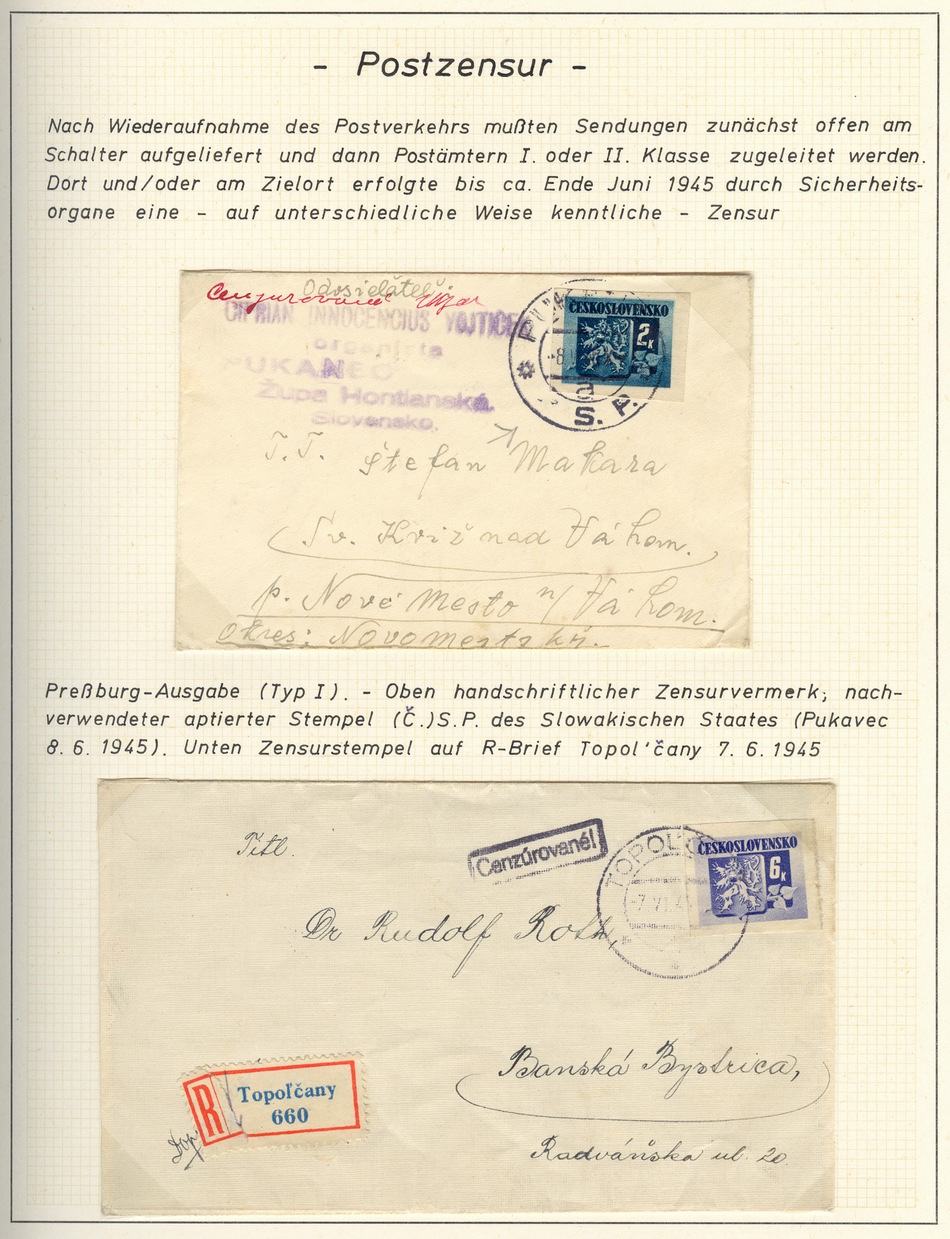 - Postzensur -
Nach Wiederaufnahme des Postverkehrs mußten Sendungen zunächst offen am
Schalter aufgeliefert und dann Postämtern I. oder II. Klasse zugeleitet werden.
Dort und/oder am Zielort erfolgte bis ca. Ende Juni 1945 durch Sicherheits-
organe eine - auf unterschiedliche Weise kenntliche - Zensur
Odosielateľ:
Cenzurované
INNOCENCIUS
organista
PUKANEC
Župa Hontianská.
Slovensko.
ČESKOSLOVENSKO
2K
-8.
a
S. P.
T.T. Štefan Makara
Sv. Kríž nad Váhom.
p. Nové Mesto n/Váhom.
Okres: Novomestský.
Preßburg-Ausgabe (Typ I). - Oben handschriftlicher Zensurvermerk; nach-
verwendeter aptierter Stempel (Č.)S.P. des Slowakischen Staates (Pukavec
8. 6. 1945). Unten Zensurstempel auf R-Brief Topol'čany 7. 6. 1945
Titl.
Cenzúrované!
TOPOĽČ
-7.VI.4
ČESKOSLOVENSKO
6K
Dr Rudolf Roth,
R Topoľčany
660
Banská Bystrica,
Radváňska ul. 20.